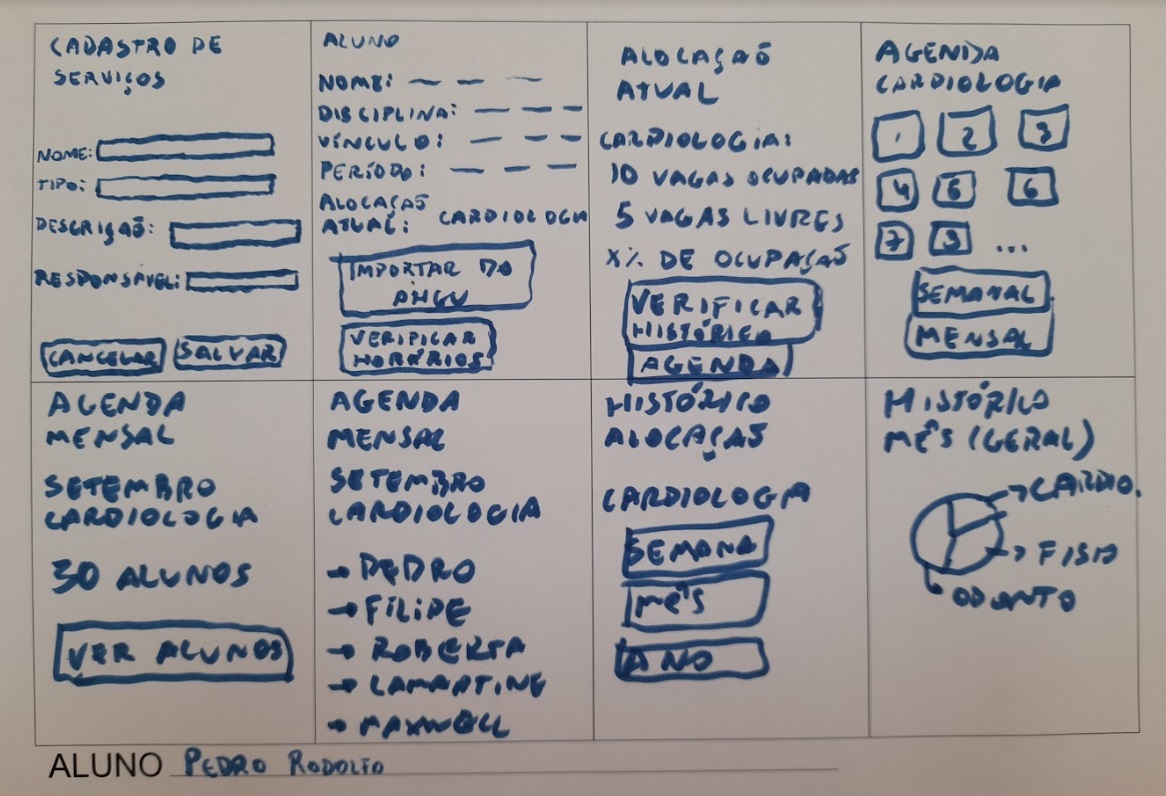 CADASTRO DE
SERVIÇOS
NOME:
TIPO:
DESCRIÇÃO:
RESPONSÁVEL:
CANCELAR SALVAR
ALUNO
NOME:
DISCIPLINA:
VÍNCULO:
PERÍODO:
ALOCAÇÃO
ATUAL: CARDIOLOGIA
IMPORTAR DO
VERIFICAR
HORÁRIOS
ALOCAÇÃO
ATUAL
CARDIOLOGIA:
10 VAGAS OCUPADAS
5 VAGAS LIVRES
X% DE OCUPAÇÃO
VERIFICAR
HISTÓRICO
AGENDA
AGENDA
CARDIOLOGIA
1 2 3
4 5 6
7 9 ...
SEMANAL
MENSAL
AGENDA
MENSAL
SETEMBRO
CARDIOLOGIA
30 ALUNOS
VER ALUNOS
AGENDA
MENSAL
SETEMBRO
CARDIOLOGIA
→ PEDRO
→ FILIPE
→ ROBERTA
→ LAMARTINE
→ MAXWELL
HISTÓRICO
ALOCAÇÃO
CARDIOLOGIA
SEMANA
MÊS
ANO
HISTÓRICO
MÊS (GERAL)
CARDIO.
FISIO
ODONTO
ALUNO PEDRO RODOLFO